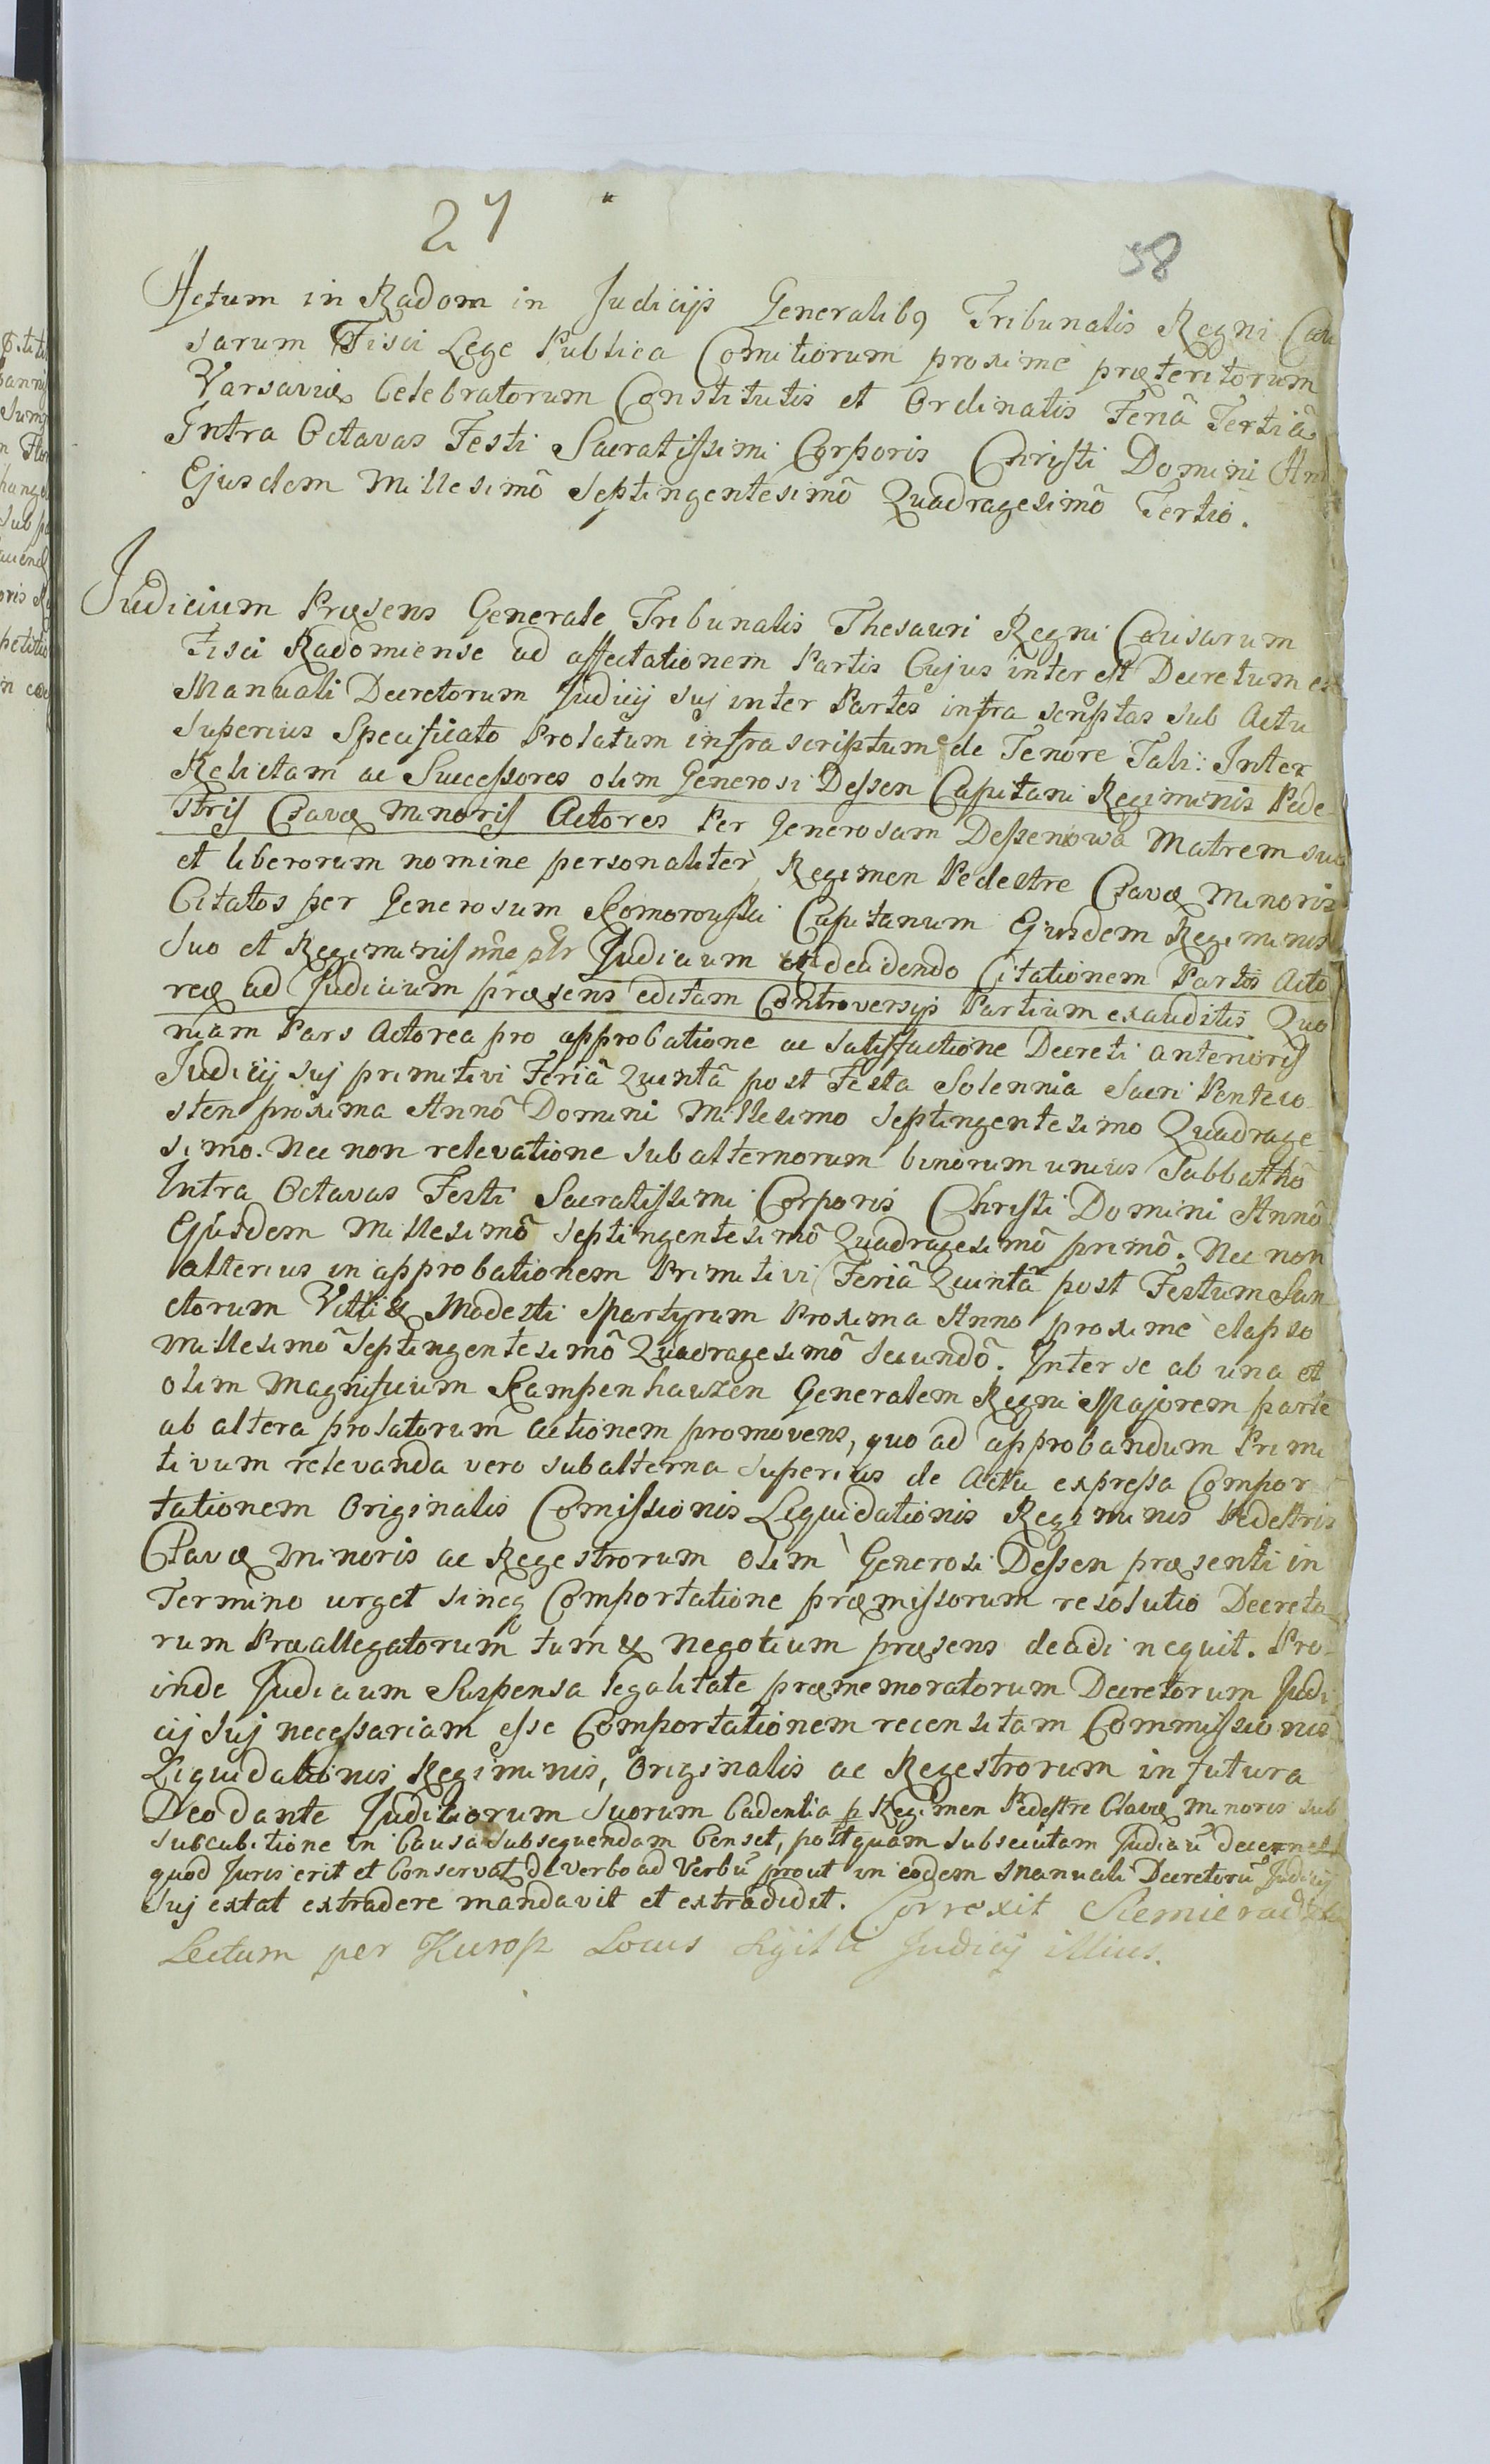 27
58
Actum in Radom in Judicijs Generalibq Tribunalis Regni Cau
sarum Fisci Lege Publica Comitiorum proxime præteritorum
Varsaviæ Celebratorum Constitutis et Ordinatis Feriâ Tertiâ
Intra Octavas Festi Sacratissimi Corporis Christi Domini An
Ejusdem Millesimô Septingentesimô Quadragesimô Tertiô.
Judicium Præsens Generale Tribunalis Thesauri Regni Causarum
Fisci Radomiense ad affectationem Partis Cujus interest Decretum ex
Manuali Decretorum Judicij sui inter Partes infra scriptas sub Actu
superius Specificato Prolatum infra scriptum de Tenore Tali: Inter
Relictam ac Successores olim Generosi Dessen Capitani Regiminis Pede
stris Clavæ Minoris Actores Per Generosam Dessenowa Matrem suo
et liberorum nomine personaliter, Regimen Pedestre Clavæ Minoris
Citatos per Generosum Komorowski Capitanum Ejusdem Regiminis
suo et Regiminis nne plr Judicium ex decidendo Citationem Partis Acto
reæ ad Judicium præsens editam Controversijs Partium exauditis Quo
niam Pars Actorea pro approbatione ac satisfactione Decreti anterioris
Judicij suj primitivi Feriâ Quintâ post Festa Solennia Sacri Penteco
sten proxima Annô Domini Millesimo Septingentesimo Quadrage
simo. Nec non relevatione subalternorum binorum unius Sabbathô
Intra Octavas Festi Sacratissimi Corporis Christi Domini Annô
Ejusdem Millesimô Septingentesimô Quadragesimô primô. Nec non
alterius in approbationem Primitivi Feriâ Quintâ post Festum San
ctorum Viti & Modesti Martyrum Proxima Anno proximè elapso
Millesimô Septingentesimô Quadragesimô secundô. Inter se ab una et
olim Magnificum Kampenhauzen Generalem Regni Majorem parte
ab altera prolatorum actionem promovens, quo ad approbandum Primi
tivum relevanda vero subalterna superius de Actu expressa Compor
tationem Originalis Comissionis Liquidationis Regiminis Pedestris
Clavæ Minoris ac Regestrorum olim Generosi Dessen præsenti in
Termino urget sineq Comportatione præmissorum resolutio Decreto
rum Præallegatorum tum & negotium præsens decidi nequit. Pro
inde Judicium Suspensa legalitate præmemoratorum Decretorum Judi
cij suj necessariam esse Comportationem recensitam Commissionis
Liquidationis Regiminis, Originalis ac Regestrorum in futura
Deo dante Juditiorum suorum Cadentia p Regimen Pedestre Clavæ Minoris sub
succubitione in Causa subsequendam Censet, post quam subsecutam Judiciū decernet
quod Juris erit et Conservat de verbo ad Verbū prout in eodem Manuali Decretorū Judicij
suj extat extradere mandavit et extradidit. Correxit Siemieradzki
Lectum per Kurosz Locus Sigilli Judicij illius.